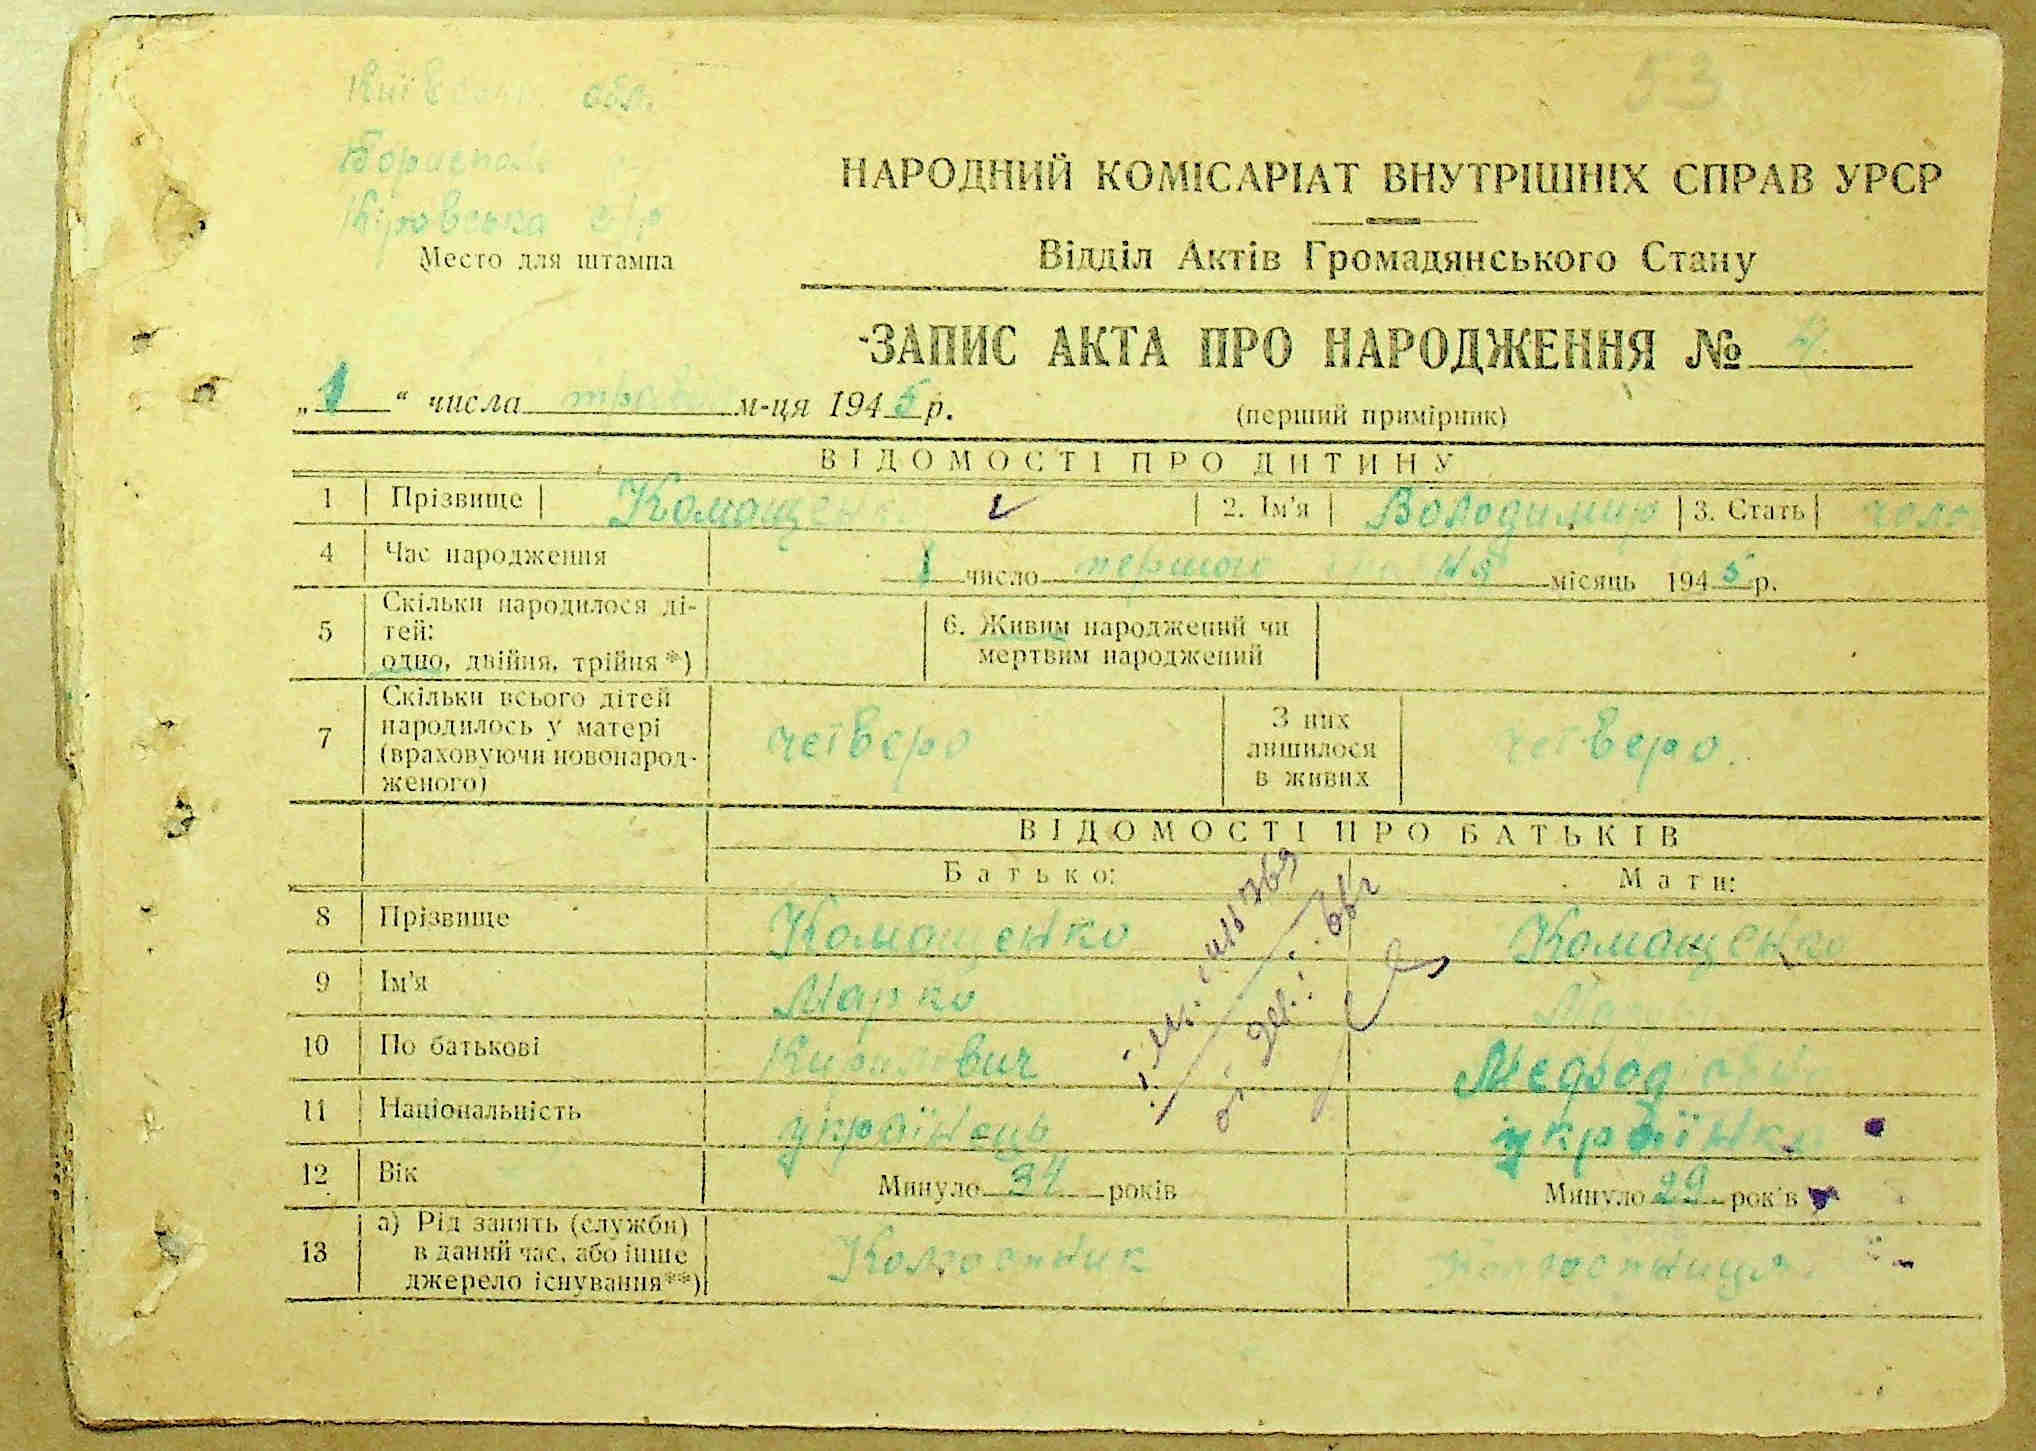 53
обл.
Місто для штампа
НАРОДНИЙ КОМІСАРІАТ ВНУТРІШНІХ СПРАВ УРСР
Відділ Актів Громадянського Стану
ЗАПИС АКТА ПРО НАРОДЖЕННЯ №
„1“ числа травня м-ця 1945 р.
(перший примірник)
ВІДОМОСТІ ПРО ДИТИНУ
1 Прізвище Комащенко 2. Ім'я Володимир 3. Стать чолов
4 Час народження 1 число першого травня місяць 1945 р.
5 Скільки народилося ді-
тей:
одно, двійня, трійня*)
6. Живим народжений чи
мертвим народжений
7 Скільки всього дітей
народилось у матері
(враховуючи новонарод-
женого)
четверо
З них
лишилося
в живих
четверо.
ВІДОМОСТІ ПРО БАТЬКІВ
Батько: Мати:
8 Прізвище Комащенко Комащенко
9 Ім'я Марко
10 По батькові Кирилович Мефодіївна
11 Національність українець українка
12 Вік Минуло 34 років Минуло 29 років
13 а) Рід занять (служби)
в даний час, або інше
джерело існування**)
Колгоспник колгоспниця